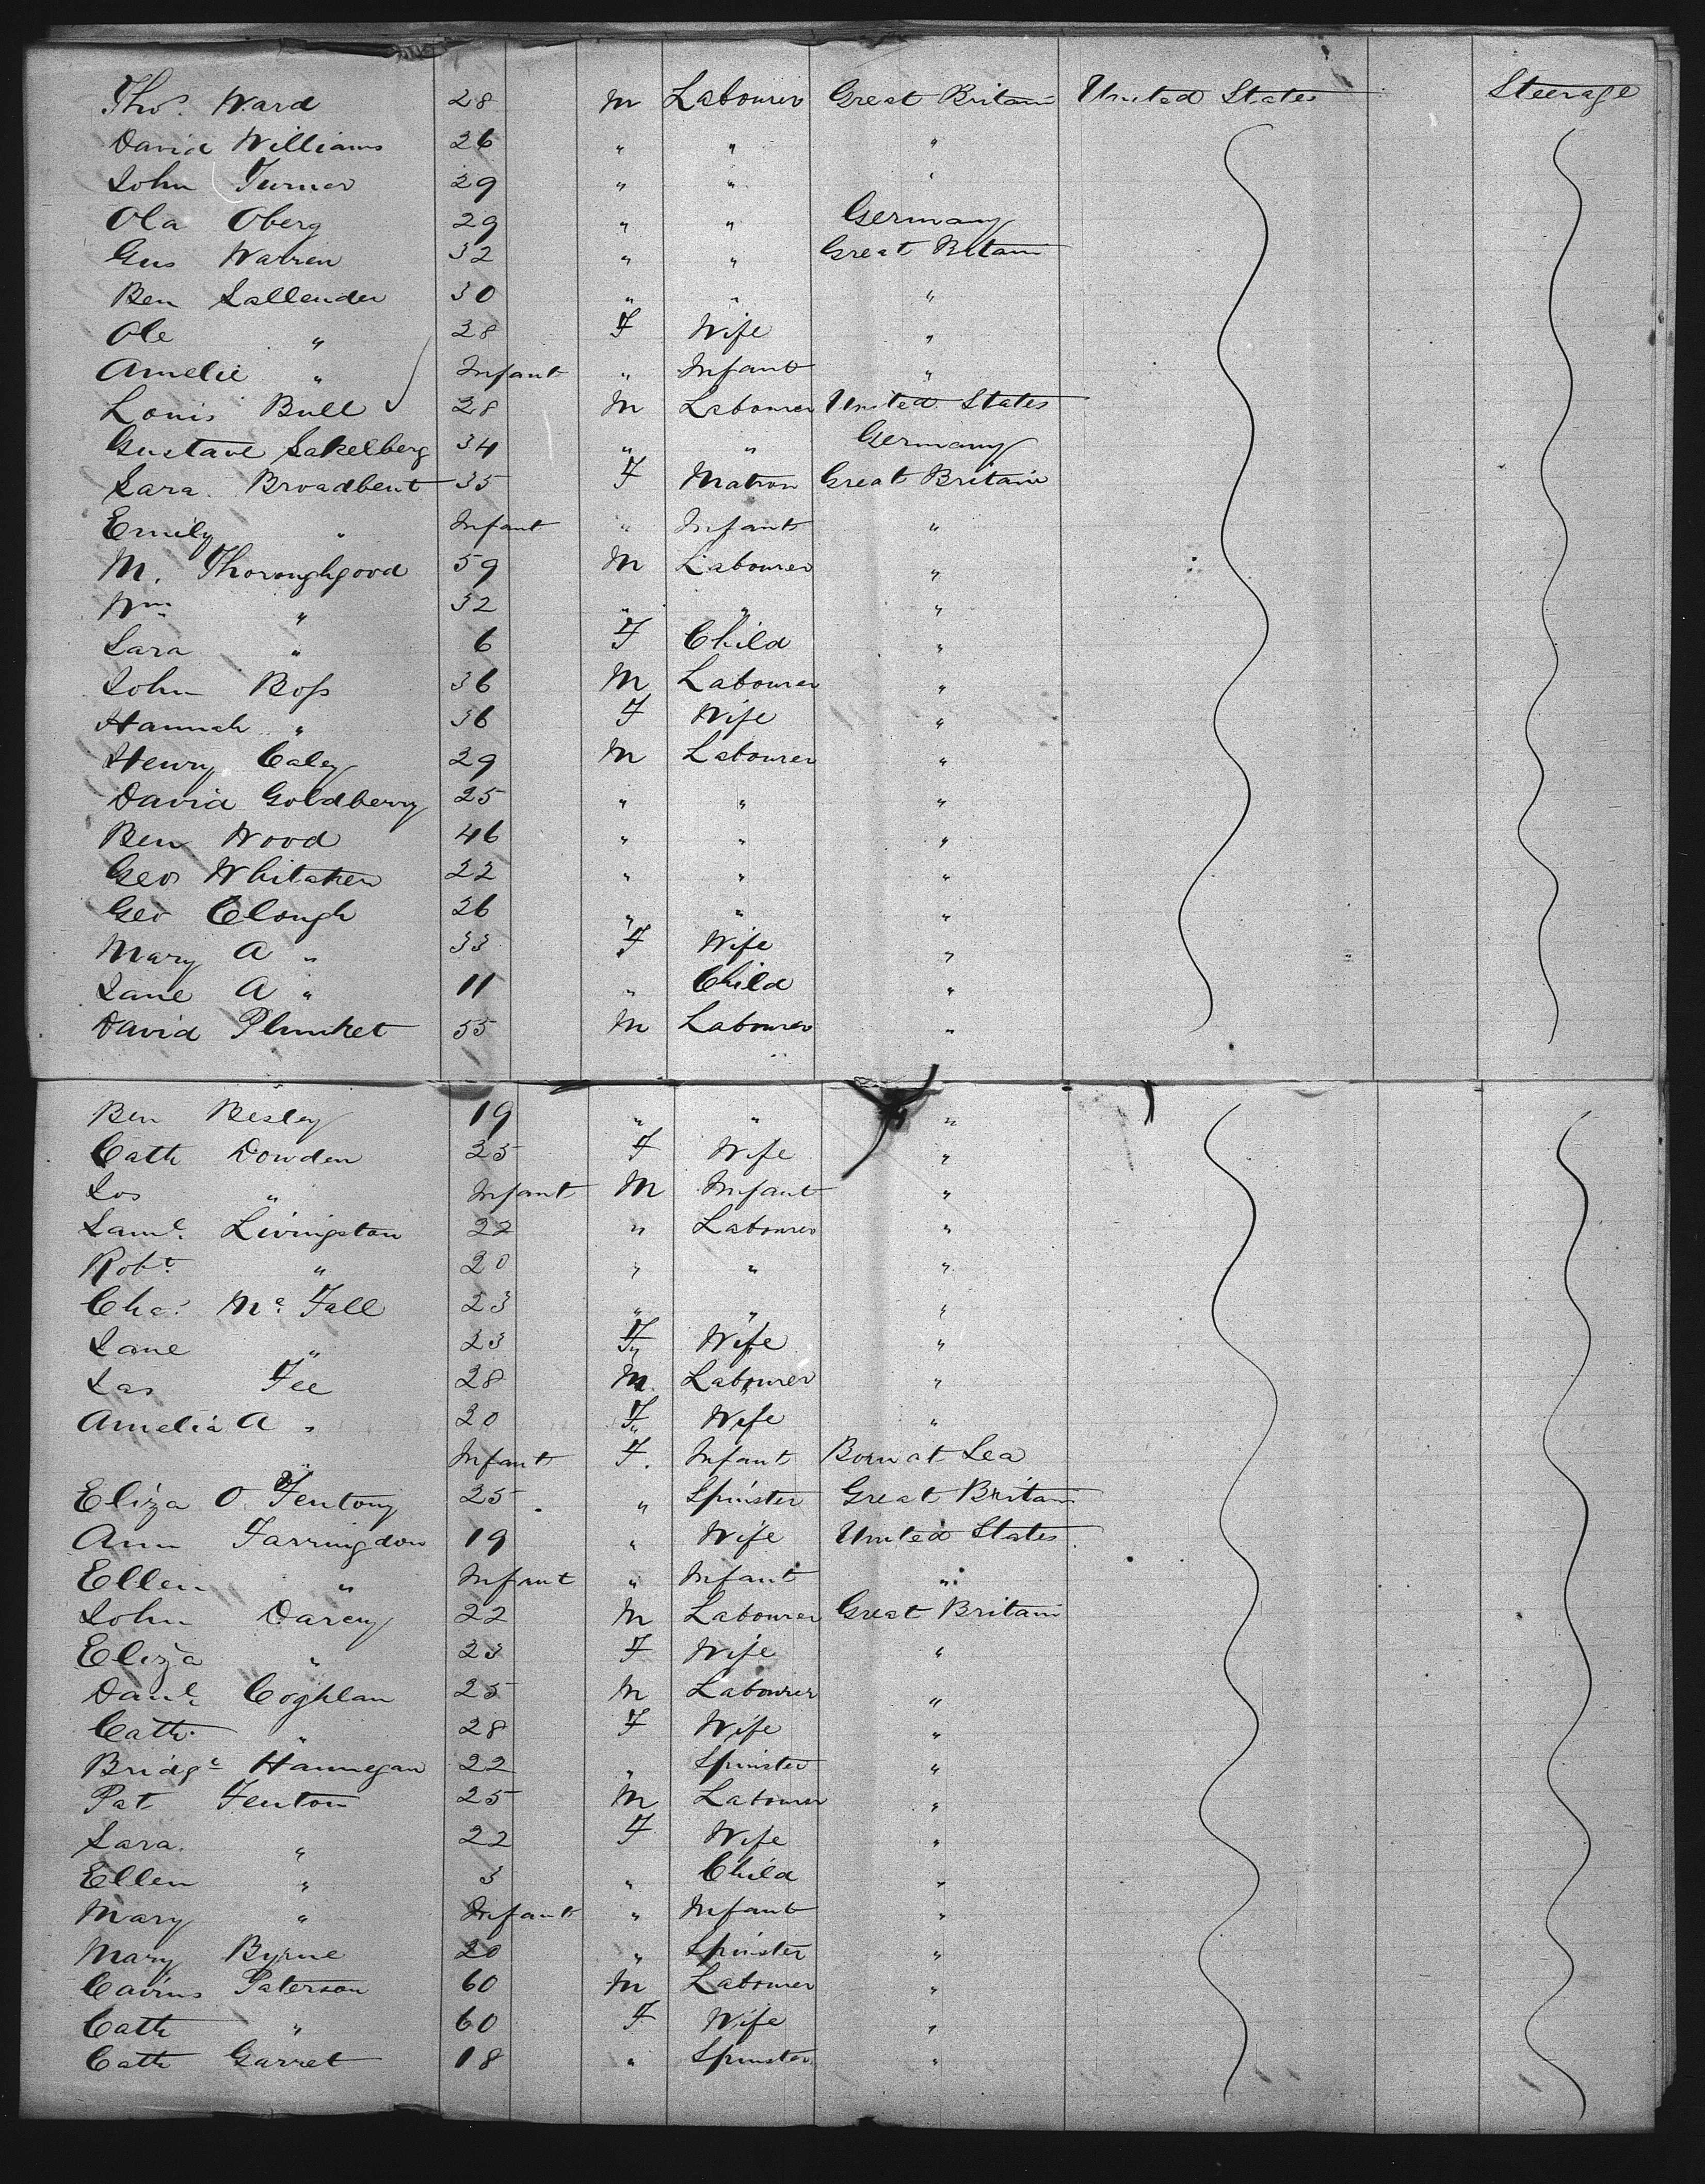 Thos. Ward 28 M Labourer Great Britain United States Steerage
David Williams 26 " " "
John Turner 29 " " "
Ola Oberg 29 " " Germany
Gus Warren 32 " " Great Britain
Ben Sallender 30 " " "
Ole " 28 F Wife "
Amelie " Infant " Infant "
Louis Bull 28 M Labourer United States
Gustave Sakelberg 34 " " Germany
Sara. Broadbent 35 F Matron Great Britain
Emily " Infant " Infant "
M. Thoroughgood 59 M Labourer "
Wm " 32 " " "
Sara " 6 F Child "
John Boss 36 M Labourer "
Hannah " 36 F Wife "
Henry Caley 29 M Labourer "
David Goldberry 25 " " "
Ben Wood 46 " " "
Geo Whitaker 22 " " "
Geo Clough 26 " " "
Mary A " 33 F Wife "
Jane A " 11 " Child "
David Plunket 55 M Labourer "
Ben Besley 19 " " "
Cath Dowden 25 F Wife "
Jos " Infant M Infant "
Saml. Livingston 22 " Labourer "
Robt. " 20 " " "
Chas. Mc Fall 23 " " "
Jane " 23 F Wife "
Jas Fee 28 M Labourer "
Amelia A " 20 F Wife "
" Infant F. Infant Born at Sea
Eliza O. Fentony 25 " Spinster Great Britain
Ann Farringdon 19 " Wife United States
Ellen " Infant " Infant "
John Darcy 22 M Labourer Great Britain
Eliza " 23 F Wife "
Danl. Coghlan 25 M Labourer "
Cath. " 28 F Wife "
Bridgt Hannegan 22 " Spinster "
Pat Fenton 25 M Labourer "
Sara. " 22 F Wife "
Ellen " 3 " Child "
Mary " Infant " Infant "
Mary Byrne 20 " Spinster "
Cairns Paterson 60 M Labourer "
Cath " 60 F Wife "
Cath Garret 18 " Spinster "